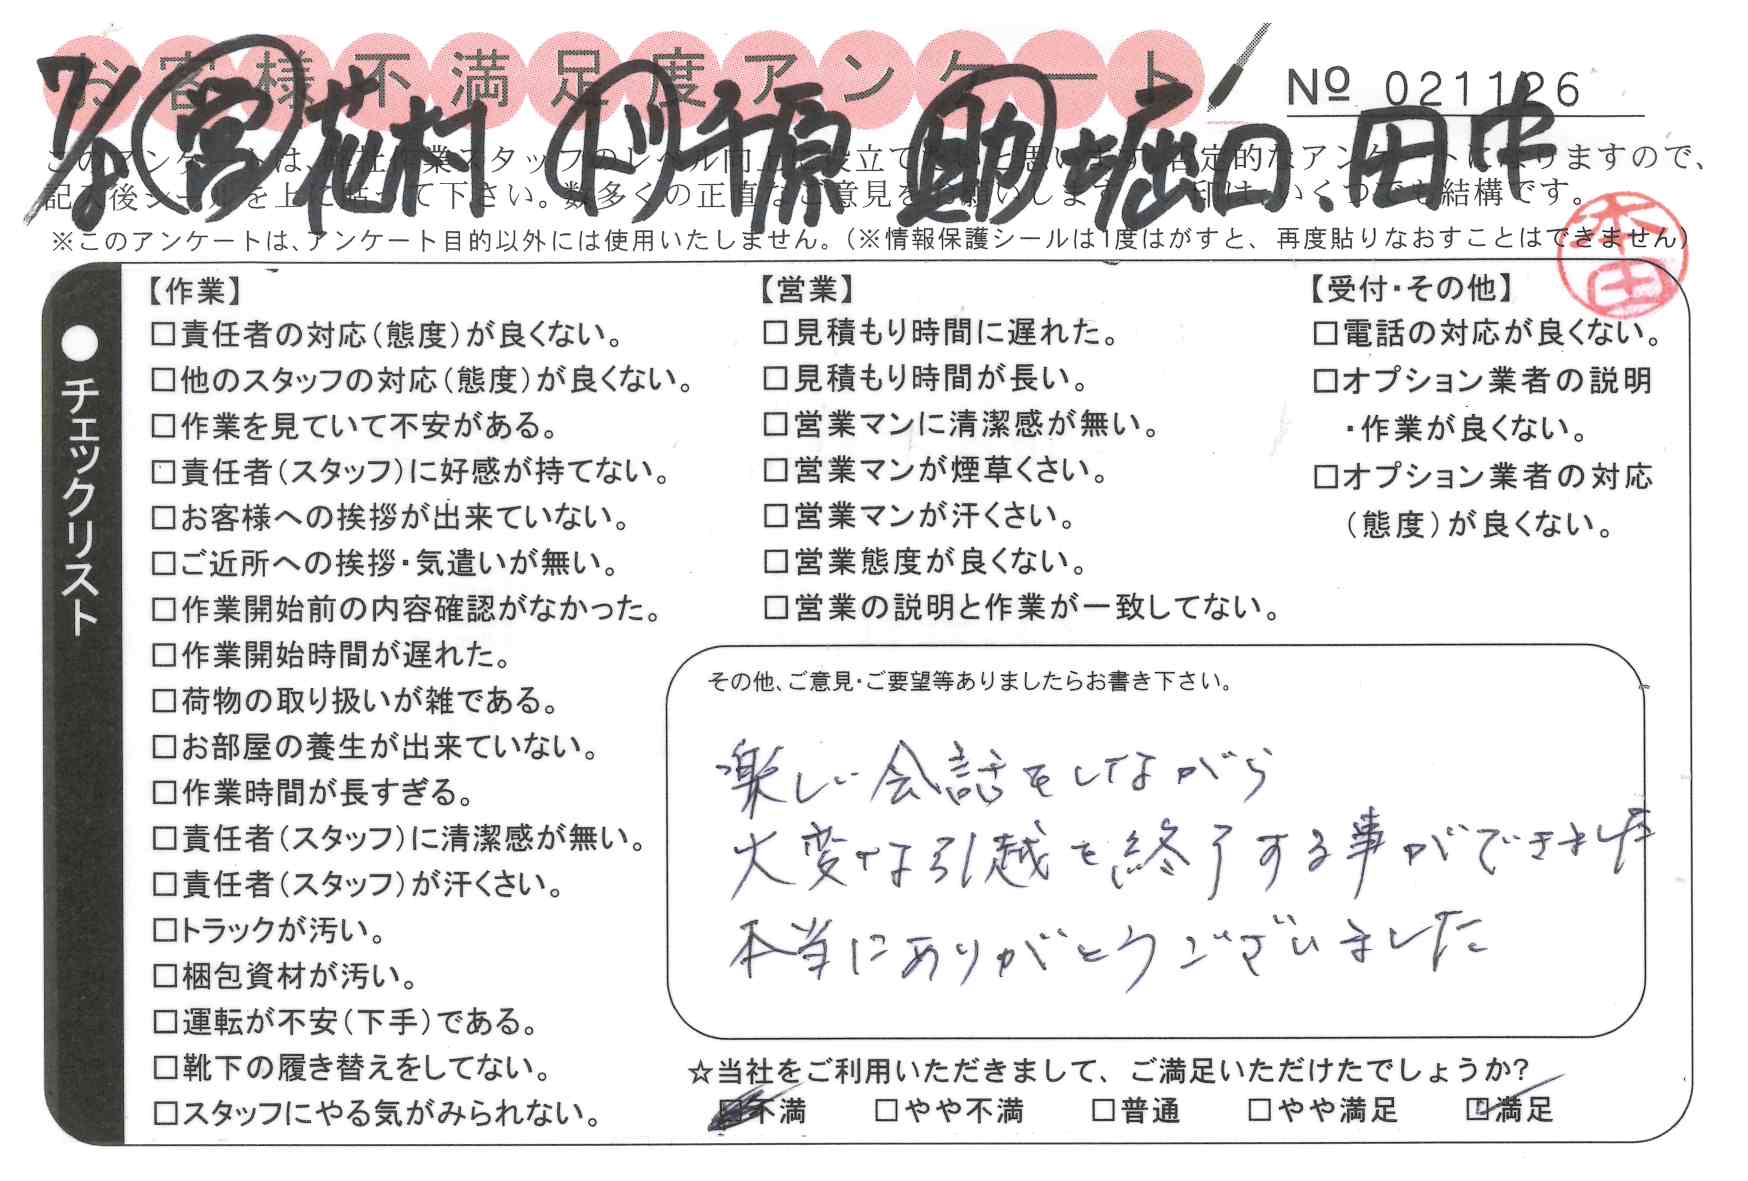 お客様不満足度アンケート
No 021126
7/8 営 花村 ド 千原 助 堀口、田中
このアンケートは、
ますので、
記入後シールを上に貼って下さい。数多くの正直なご意見をお願いします。
印は、いくつでも結構です。
※このアンケートは、アンケート目的以外には使用いたしません。(※情報保護シールは1度はがすと、再度貼りなおすことはできません)
本田
●チェックリスト
【作業】
□責任者の対応(態度)が良くない。
□他のスタッフの対応(態度)が良くない。
□作業を見ていて不安がある。
□責任者(スタッフ)に好感が持てない。
□お客様への挨拶が出来ていない。
□ご近所への挨拶・気遣いが無い。
□作業開始前の内容確認がなかった。
□作業開始時間が遅れた。
□荷物の取り扱いが雑である。
□お部屋の養生が出来ていない。
□作業時間が長すぎる。
□責任者(スタッフ)に清潔感が無い。
□責任者(スタッフ)が汗くさい。
□トラックが汚い。
□梱包資材が汚い。
□運転が不安(下手)である。
□靴下の履き替えをしてない。
□スタッフにやる気がみられない。
【営業】
□見積もり時間に遅れた。
□見積もり時間が長い。
□営業マンに清潔感が無い。
□営業マンが煙草くさい。
□営業マンが汗くさい。
□営業態度が良くない。
□営業の説明と作業が一致してない。
【受付・その他】
□電話の対応が良くない。
□オプション業者の説明
・作業が良くない。
□オプション業者の対応
(態度)が良くない。
その他、ご意見・ご要望等ありましたらお書き下さい。
楽しい会話をしながら
大変な引越を終了する事ができました
本当にありがとうございました
☆当社をご利用いただきまして、ご満足いただけたでしょうか?
□不満 □やや不満 □普通 □やや満足 ☑満足